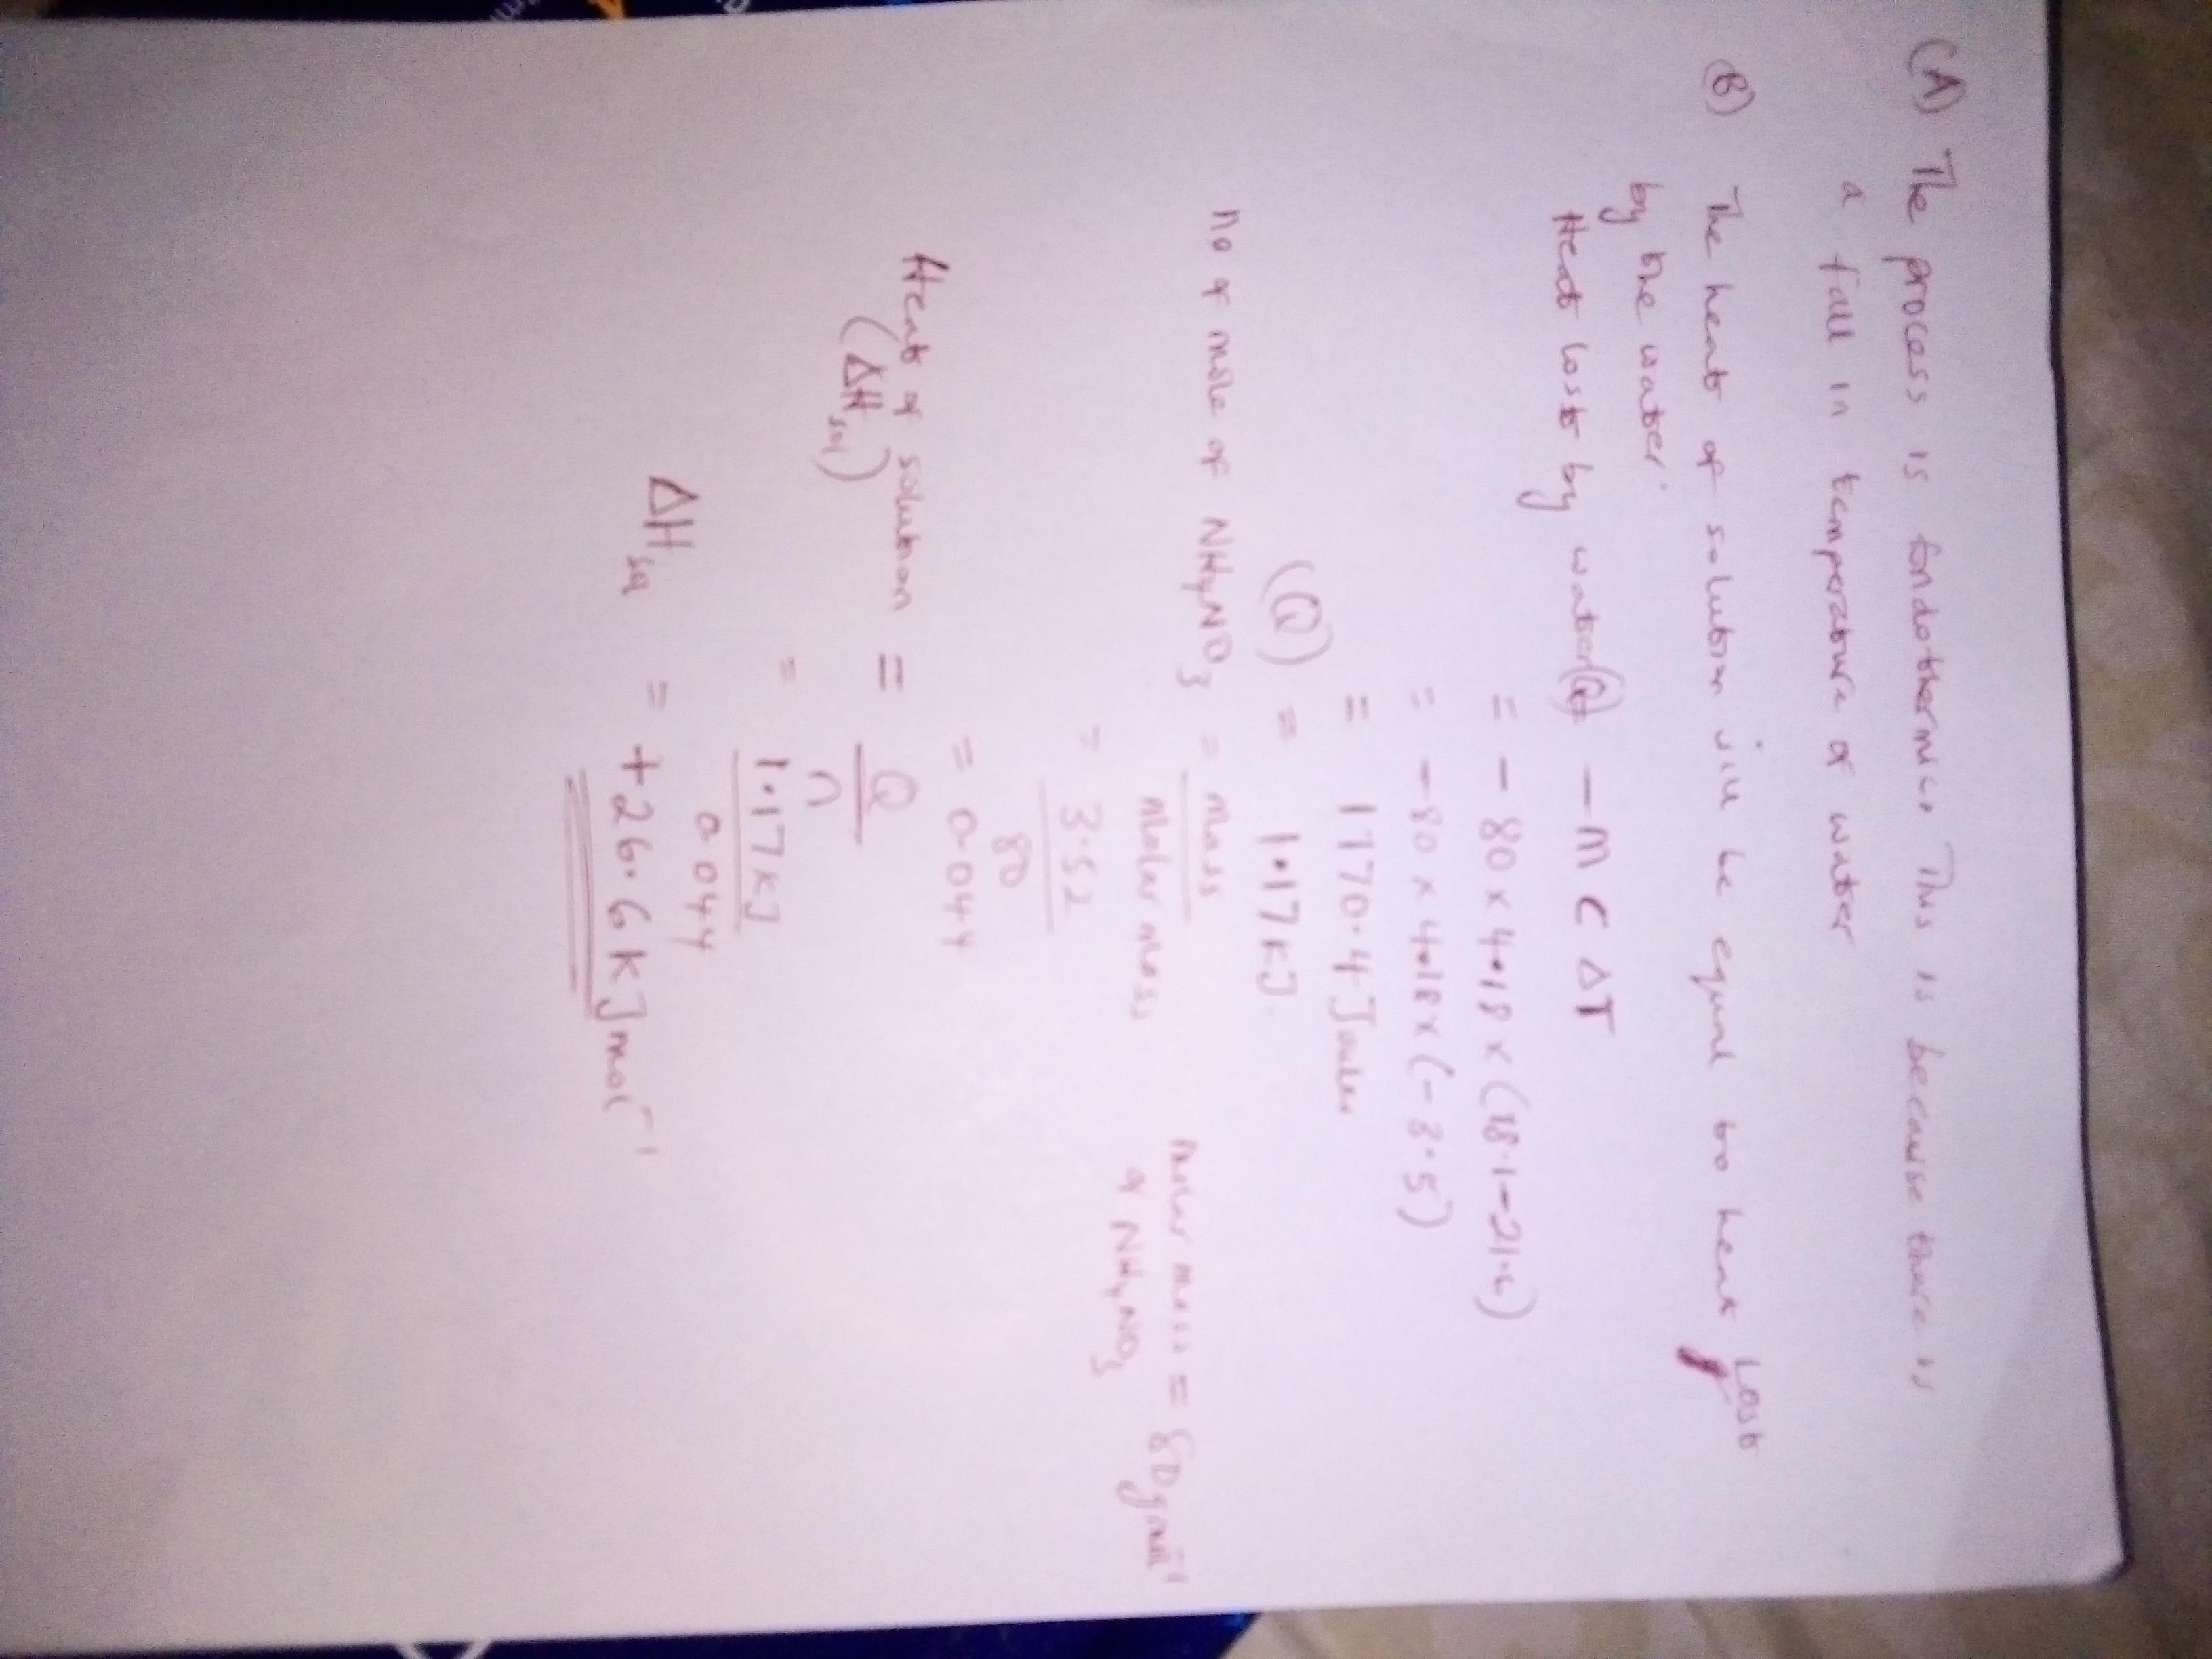 (A) The process is Endothermic. This is because there is
a fall in temperature of water
(B) The heat of solution will be equal too heat Lost
by the water.
Heat lost by water(Q) = - M C ΔT
= - 80 x 4.18 x (18.1-21.6)
= -80 x 4.18 x (-3.5)
= 1170.4 Joules
(Q) = 1.17 KJ.
no of mole of NH4NO3 = mass
molar mass
molar mass = 80gmol⁻¹
of NH4NO3
= 3.52
80
= 0.044
Heat of solution = Q
(ΔHsol) n
= 1.17KJ
0.044
ΔHsol = +26.6KJmol⁻¹